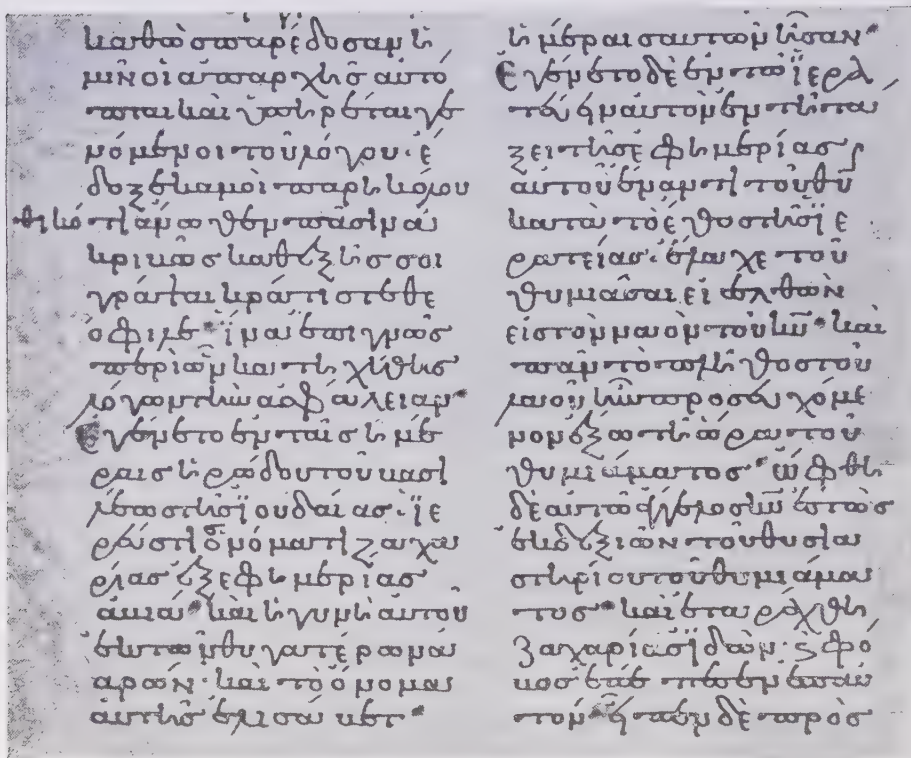 καθὼς παρέδοσαν ἡ
μῖν οἱ ἀπαρχῆς αὐτό
πται καὶ ὑπηρέται γε
νόμενοι τοῦ λόγου· ἔ
δοξε κἀμοὶ παρηκολου
θικότι ἄνωθεν πᾶσιν ἀ
κριβῶς καθεξῆς σοι
γράψαι κράτιστε θε
όφιλε· ἵνα ἐπιγνῶς
περὶ ὧν κατηχήθης
λόγων τὴν ἀσφάλειαν·
Ἐγένετο ἐν ταῖς ἡμέ
ραις ἡρώδου τοῦ βασι
λέως τῆς ἰουδαίας· ἱε
ρεύς τις ὀνόματι ζαχα
ρίας ἐξ ἐφημερίας
ἀβιά· καὶ ἡ γυνὴ αὐτοῦ
ἐκ τῶν θυγατέρων ἀ
αρών· καὶ τὸ ὄνομα
αὐτῆς ἐλισάβετ·
ἡμέραις αὐτῶν ἦσαν·
Ἐγένετο δὲ ἐν τῶ ἱερα
τεύειν αὐτὸν ἐν τῆ τά
ξει τῆς ἐφημερίας
αὐτοῦ ἔναντι τοῦ θ̅υ̅
κατὰ τὸ ἔθος τῆς ἱε
ρατείας· ἔλαχε τοῦ
θυμιᾶσαι εἰσελθὼν
εἰς τὸν ναὸν τοῦ κ̅υ̅· καὶ
πᾶν τὸ πλῆθος τοῦ
λαοῦ ἦν προσευχόμε
νον ἔξω τῆ ὥρα τοῦ
θυμιάματος· ὤφθη
δὲ αὐτῶ ἄγγελος κ̅υ̅ ἑστὼς
ἐκ δεξιῶν τοῦ θυσια
στηρίου τοῦ θυμιάμα
τος· καὶ ἐταράχθη
ζαχαρίας ἰδών· ϗ φό
βος ἐπέπεσεν ἐπ αὐ
τόν· εἶπεν δὲ πρὸς